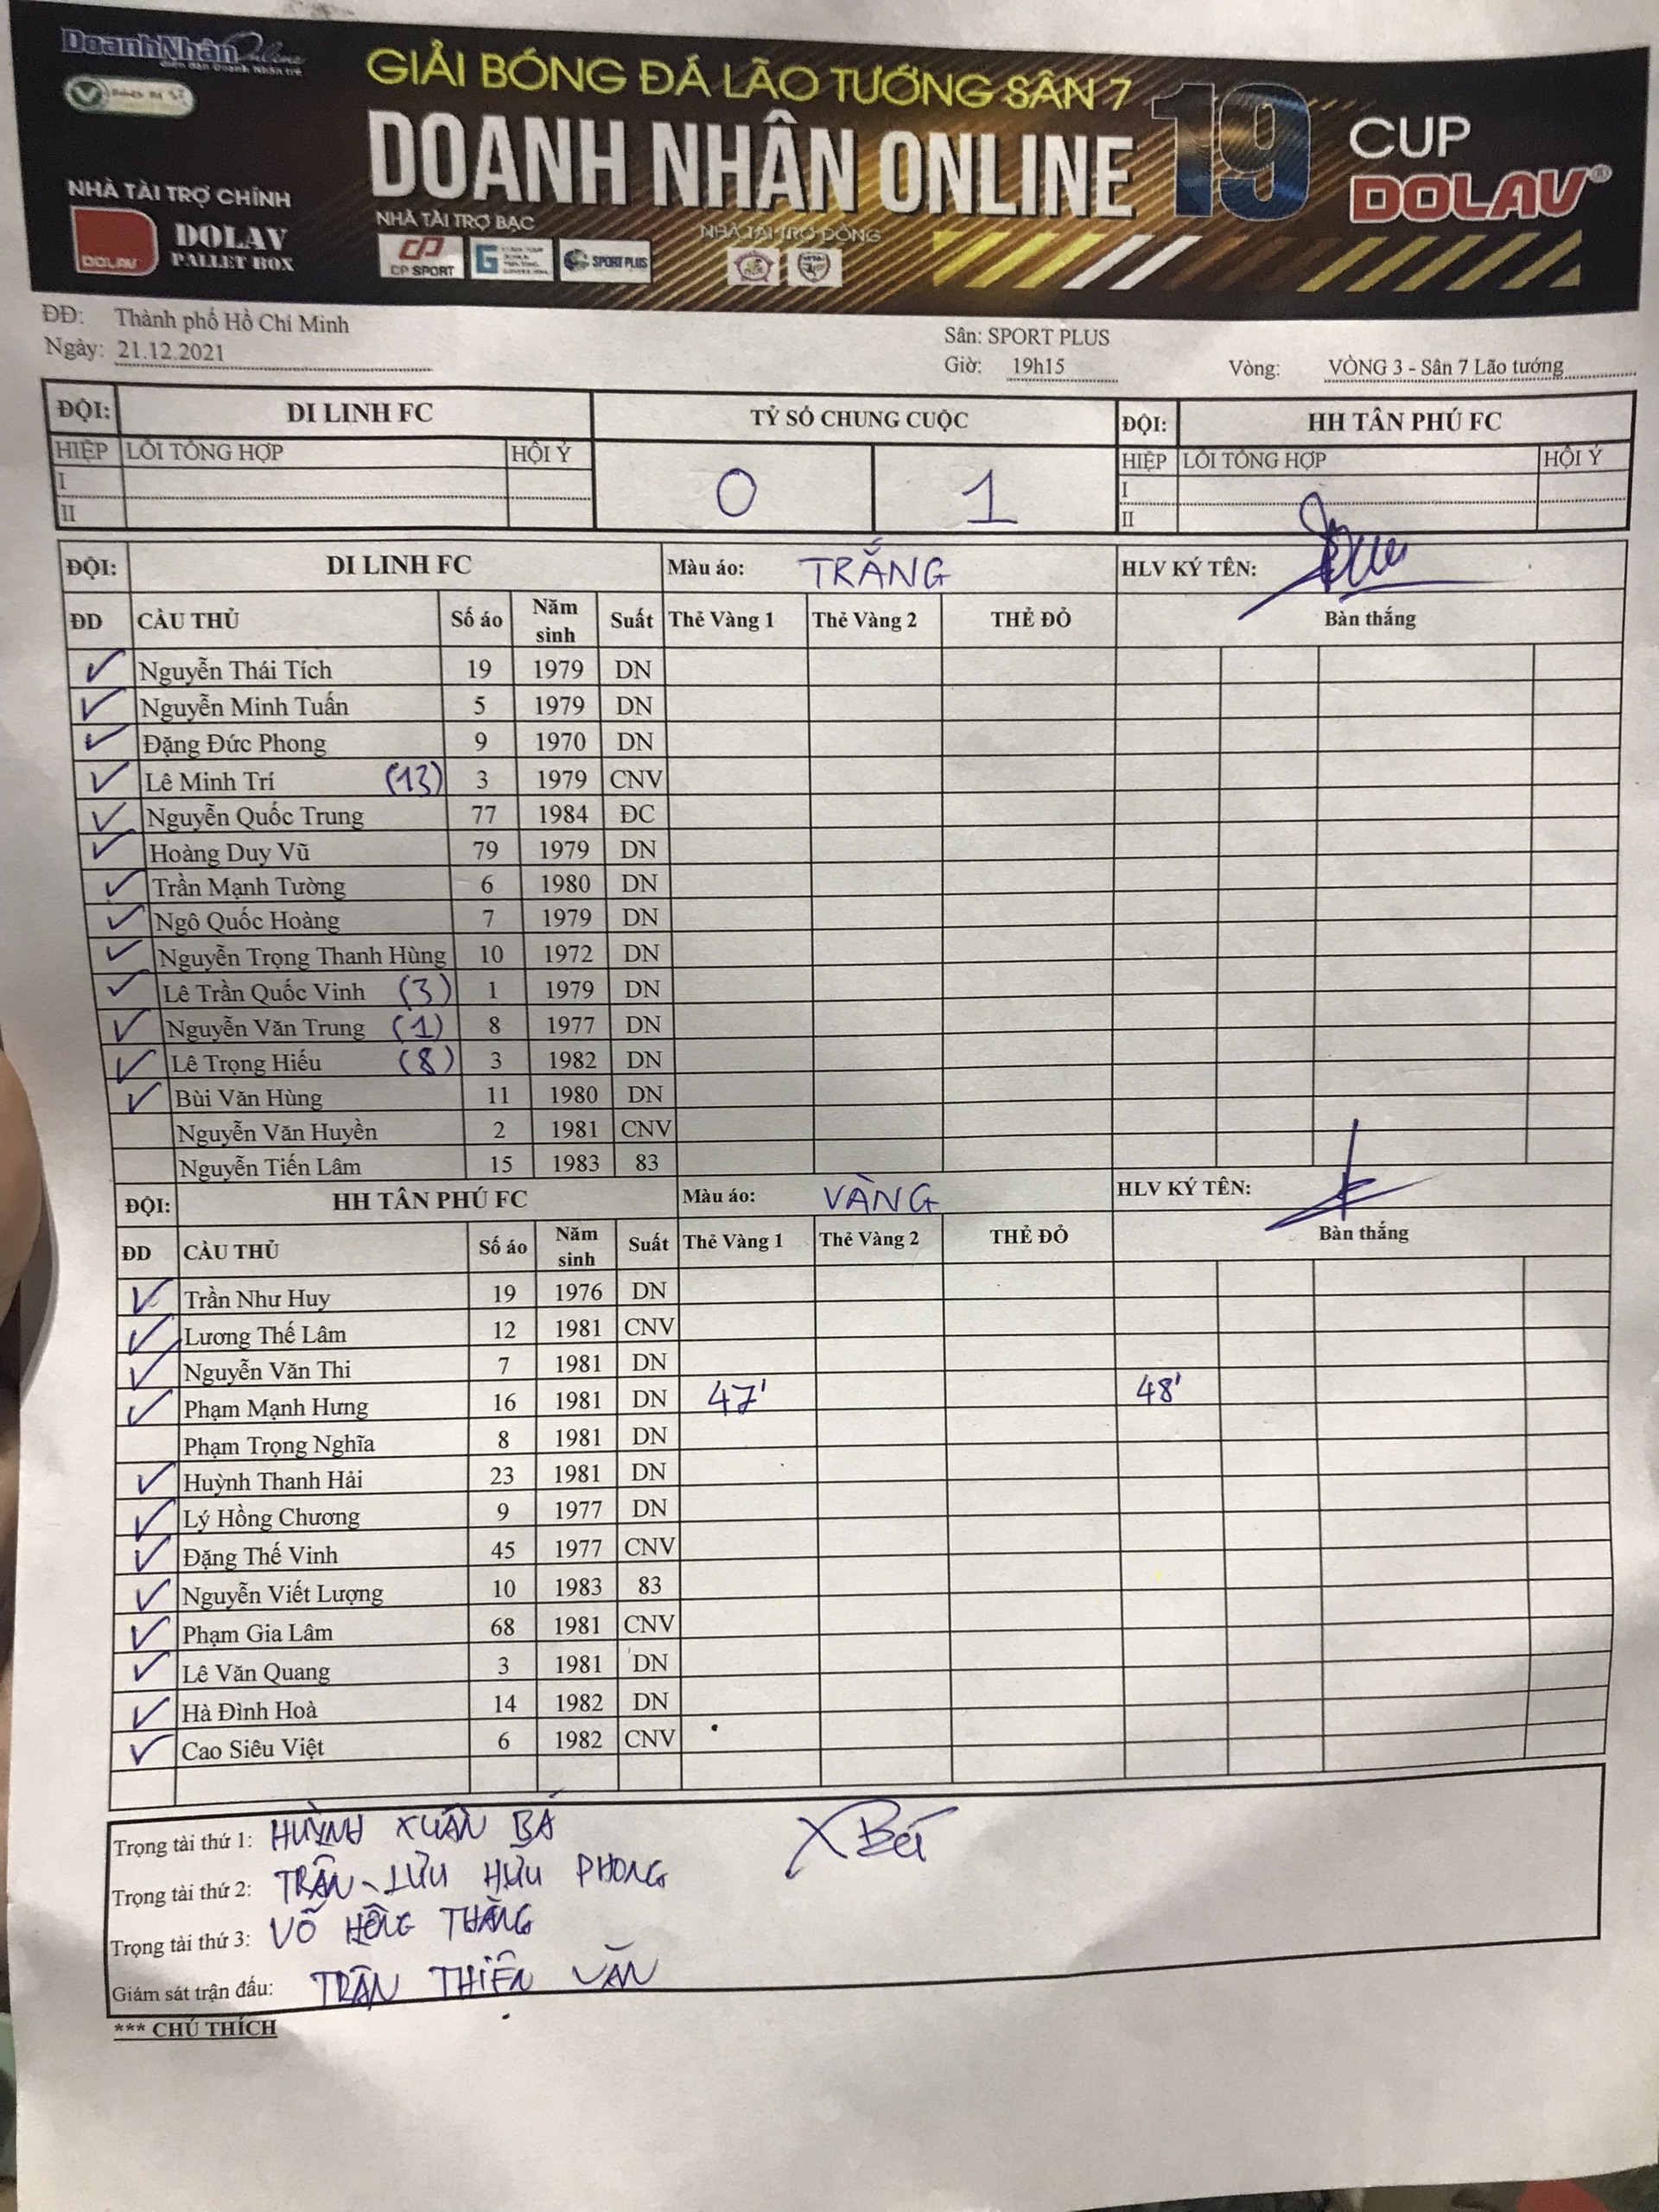 DoanhNhân Online
Diễn đàn Doanh Nhân trẻ
GIẢI BÓNG ĐÁ LÃO TƯỚNG SÂN 7
DOANH NHÂN ONLINE 19
CUP
DOLAV®
NHÀ TÀI TRỢ CHÍNH
DOLAV
DOLAV
PALLET BOX
NHÀ TÀI TRỢ BẠC
CP SPORT
SPORT PLUS
NHÀ TÀI TRỢ ĐỒNG
ĐĐ: Thành phố Hồ Chí Minh
Sân: SPORT PLUS
Ngày: 21.12.2021
Giờ: 19h15
Vòng: VÒNG 3 - Sân 7 Lão tướng
ĐỘI: DI LINH FC TỶ SỐ CHUNG CUỘC ĐỘI: HH TÂN PHÚ FC
HIỆP LỖI TỔNG HỢP HỘI Ý 0 1 HIỆP LỖI TỔNG HỢP HỘI Ý
I I
II II
ĐỘI: DI LINH FC Màu áo: TRẮNG HLV KÝ TÊN:
ĐD CẦU THỦ Số áo Năm sinh Suất Thẻ Vàng 1 Thẻ Vàng 2 THẺ ĐỎ Bàn thắng
✓ Nguyễn Thái Tích 19 1979 DN
✓ Nguyễn Minh Tuấn 5 1979 DN
✓ Đặng Đức Phong 9 1970 DN
✓ Lê Minh Trí (13) 3 1979 CNV
✓ Nguyễn Quốc Trung 77 1984 ĐC
✓ Hoàng Duy Vũ 79 1979 DN
✓ Trần Mạnh Tường 6 1980 DN
✓ Ngô Quốc Hoàng 7 1979 DN
✓ Nguyễn Trọng Thanh Hùng 10 1972 DN
✓ Lê Trần Quốc Vinh (3) 1 1979 DN
✓ Nguyễn Văn Trung (1) 8 1977 DN
✓ Lê Trọng Hiếu (8) 3 1982 DN
✓ Bùi Văn Hùng 11 1980 DN
Nguyễn Văn Huyền 2 1981 CNV
Nguyễn Tiến Lâm 15 1983 83
ĐỘI: HH TÂN PHÚ FC Màu áo: VÀNG HLV KÝ TÊN:
ĐD CẦU THỦ Số áo Năm sinh Suất Thẻ Vàng 1 Thẻ Vàng 2 THẺ ĐỎ Bàn thắng
✓ Trần Như Huy 19 1976 DN
✓ Lương Thế Lâm 12 1981 CNV
✓ Nguyễn Văn Thi 7 1981 DN
✓ Phạm Mạnh Hưng 16 1981 DN 47' 48'
Phạm Trọng Nghĩa 8 1981 DN
✓ Huỳnh Thanh Hải 23 1981 DN
✓ Lý Hồng Chương 9 1977 DN
✓ Đặng Thế Vinh 45 1977 CNV
✓ Nguyễn Viết Lượng 10 1983 83
✓ Phạm Gia Lâm 68 1981 CNV
✓ Lê Văn Quang 3 1981 DN
✓ Hà Đình Hoà 14 1982 DN
✓ Cao Siêu Việt 6 1982 CNV
Trọng tài thứ 1: HUỲNH XUÂN BÁ XBá
Trọng tài thứ 2: TRẦN LƯU HỮU PHONG
Trọng tài thứ 3: VÕ HỒNG THẮNG
Giám sát trận đấu: TRẦN THIÊN VĂN
*** CHÚ THÍCH